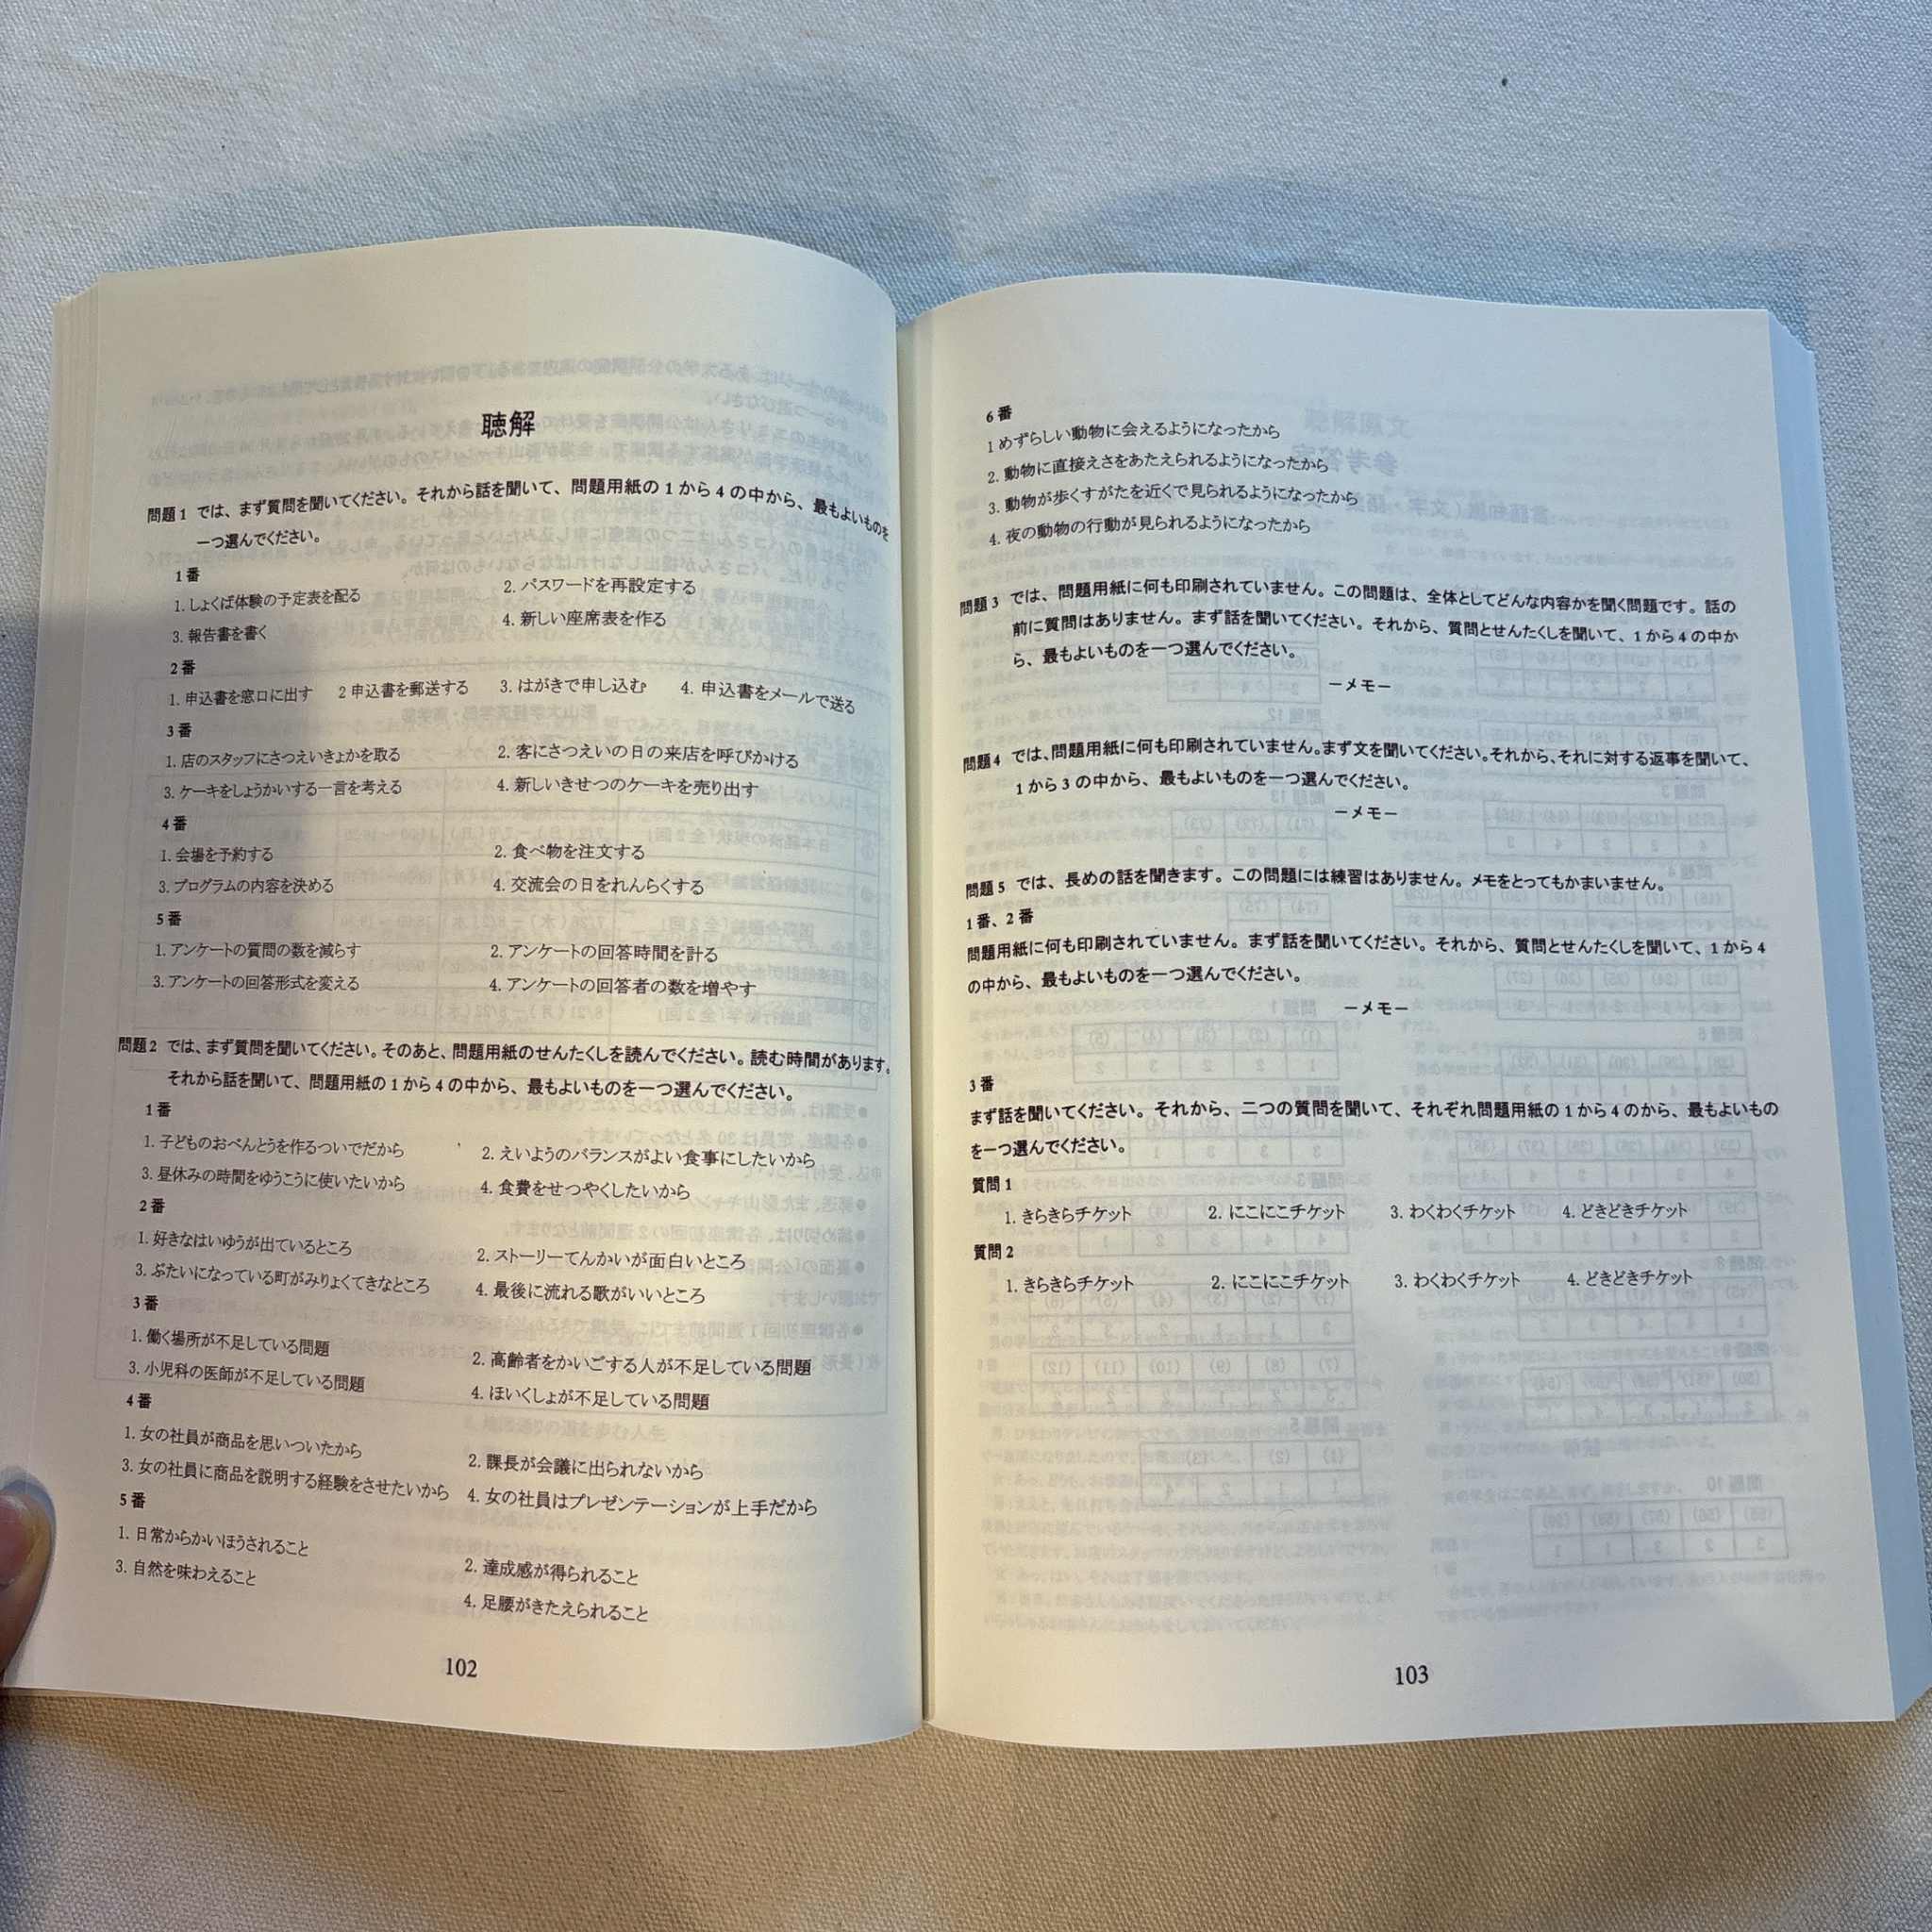 聴解
問題1 では、まず質問を聞いてください。それから話を聞いて、問題用紙の1から4の中から、最もよいものを
一つ選んでください。
1番
1. しょくば体験の予定表を配る 2. パスワードを再設定する
3. 報告書を書く 4. 新しい座席表を作る
2番
1. 申込書を窓口に出す 2 申込書を郵送する 3. はがきで申し込む 4. 申込書をメールで送る
3番
1. 店のスタッフにさつえいきょかを取る 2. 客にさつえいの日の来店を呼びかける
3. ケーキをしょうかいする一言を考える 4. 新しいきせつのケーキを売り出す
4番
1. 会場を予約する 2. 食べ物を注文する
3. プログラムの内容を決める 4. 交流会の日をれんらくする
5番
1. アンケートの質問の数を減らす 2. アンケートの回答時間を計る
3. アンケートの回答形式を変える 4. アンケートの回答者の数を増やす
問題2 では、まず質問を聞いてください。そのあと、問題用紙のせんたくしを読んでください。読む時間があります。
それから話を聞いて、問題用紙の1から4の中から、最もよいものを一つ選んでください。
1番
1. 子どものおべんとうを作るついでだから 2. えいようのバランスがよい食事にしたいから
3. 昼休みの時間をゆうこうに使いたいから 4. 食費をせつやくしたいから
2番
1. 好きなはいゆうが出ているところ 2. ストーリーてんかいが面白いところ
3. ぶたいになっている町がみりょくてきなところ 4. 最後に流れる歌がいいところ
3番
1. 働く場所が不足している問題 2. 高齢者をかいごする人が不足している問題
3. 小児科の医師が不足している問題 4. ほいくしょが不足している問題
4番
1. 女の社員が商品を思いついたから 2. 課長が会議に出られないから
3. 女の社員に商品を説明する経験をさせたいから 4. 女の社員はプレゼンテーションが上手だから
5番
1. 日常からかいほうされること 2. 達成感が得られること
3. 自然を味わえること 4. 足腰がきたえられること
102
6番
1 めずらしい動物に会えるようになったから
2. 動物に直接えさをあたえられるようになったから
3. 動物が歩くすがたを近くで見られるようになったから
4. 夜の動物の行動が見られるようになったから
問題3 では、問題用紙に何も印刷されていません。この問題は、全体としてどんな内容かを聞く問題です。話の
前に質問はありません。まず話を聞いてください。それから、質問とせんたくしを聞いて、1から4の中か
ら、最もよいものを一つ選んでください。
－メモ－
問題4 では、問題用紙に何も印刷されていません。まず文を聞いてください。それから、それに対する返事を聞いて、
1から3の中から、最もよいものを一つ選んでください。
－メモ－
問題5 では、長めの話を聞きます。この問題には練習はありません。メモをとってもかまいません。
1番、2番
問題用紙に何も印刷されていません。まず話を聞いてください。それから、質問とせんたくしを聞いて、1から4
の中から、最もよいものを一つ選んでください。
－メモ－
3番
まず話を聞いてください。それから、二つの質問を聞いて、それぞれ問題用紙の1から4のから、最もよいもの
を一つ選んでください。
質問1
1. きらきらチケット 2. にこにこチケット 3. わくわくチケット 4. どきどきチケット
質問2
1. きらきらチケット 2. にこにこチケット 3. わくわくチケット 4. どきどきチケット
103